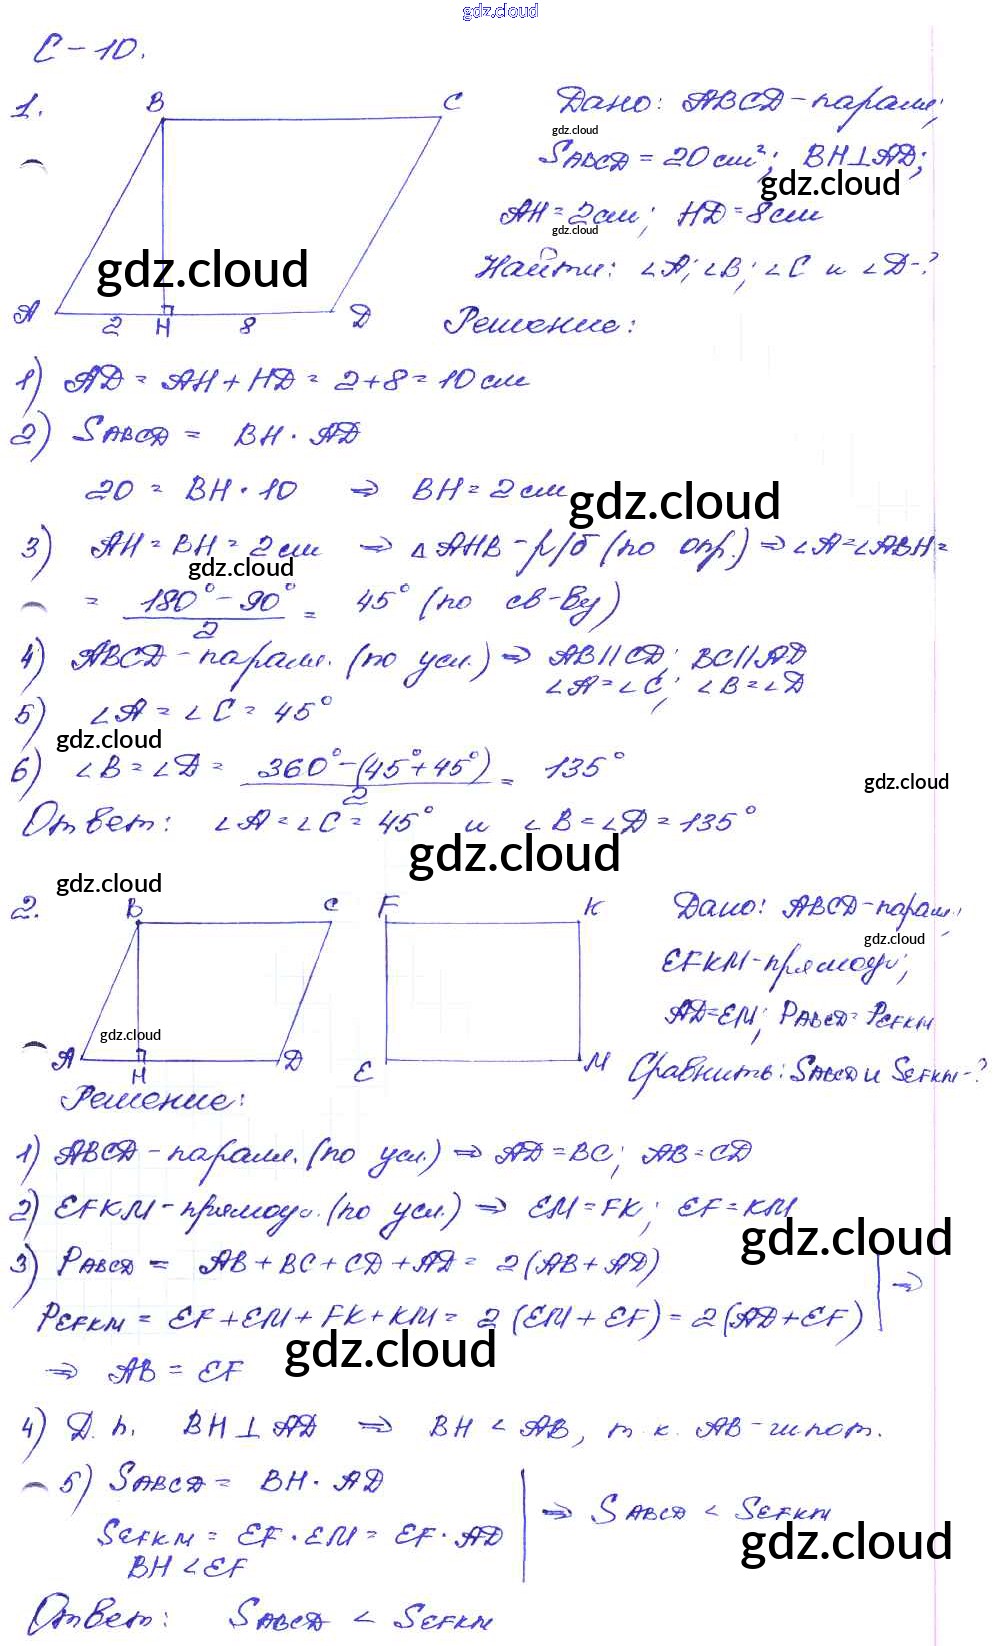 gdz.cloud
С-10.
1.
B C
A 2 H 8 D
Дано: ABCD-парал.;
gdz.cloud
SABCD = 20 см²; BH⊥AD;
gdz.cloud
AH = 2см; HD = 8см
gdz.cloud
Найти: ∠A; ∠B; ∠C и ∠D-?
gdz.cloud
Решение:
1) AD = AH + HD = 2+8 = 10 см
2) SABCD = BH · AD
20 = BH · 10 ⇒ BH = 2 см
gdz.cloud
3) AH = BH = 2 см ⇒ △AHB - р/б (по опр.) ⇒ ∠A = ∠ABH =
gdz.cloud
= (180° - 90°)/2 = 45° (по св-ву)
4) ABCD - парал. (по усл.) ⇒ AB||CD; BC||AD
∠A = ∠C; ∠B = ∠D
5) ∠A = ∠C = 45°
gdz.cloud
6) ∠B = ∠D = (360° - (45° + 45°))/2 = 135°
gdz.cloud
Ответ: ∠A = ∠C = 45° и ∠B = ∠D = 135°
gdz.cloud
gdz.cloud
2.
B C
A H D
F K
E M
gdz.cloud
Дано: ABCD-парал.;
gdz.cloud
EFKM-прямоуг.;
AD=EM; PABCD = PEFKM
Сравнить: SABCD и SEFKM-?
Решение:
1) ABCD - парал. (по усл.) ⇒ AD = BC; AB = CD
2) EFKM - прямоуг. (по усл.) ⇒ EM = FK; EF = KM
gdz.cloud
3) PABCD = AB + BC + CD + AD = 2(AB + AD)
PEFKM = EF + EM + FK + KM = 2(EM + EF) = 2(AD + EF) ⇒
gdz.cloud
⇒ AB = EF
4) Д.п. BH⊥AD ⇒ BH < AB, т.к. AB - гипот.
5) SABCD = BH · AD
SEFKM = EF · EM = EF · AD
BH < EF
⇒ SABCD < SEFKM
gdz.cloud
Ответ: SABCD < SEFKM